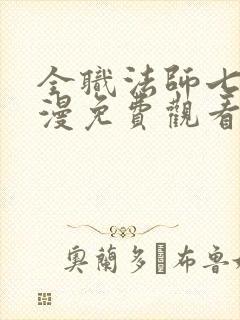 全職法師七
漫免費觀看
奧蘭多·布魯